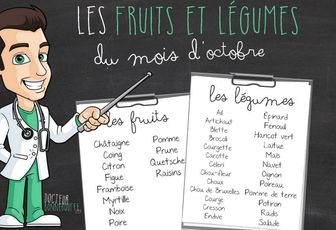 LES FRUITS ET LÉGUMES
du mois d'octobre
les fruits
Châtaigne
Coing
Citron
Figue
Framboise
Myrtille
Noix
Poire
Pomme
Prune
Quetsche
Raisins
les légumes
Ail
Artichaut
Blette
Brocoli
Courgette
Carotte
Céleri
Chou-fleur
Choux
Chou de Bruxelles
Courge
Cresson
Endive
Épinard
Fenouil
Haricot vert
Laitue
Maïs
Navet
Oignon
Poireau
Pomme de terre
Potiron
Radis
Salade
DOCTEUR
BONNEBOUFFE